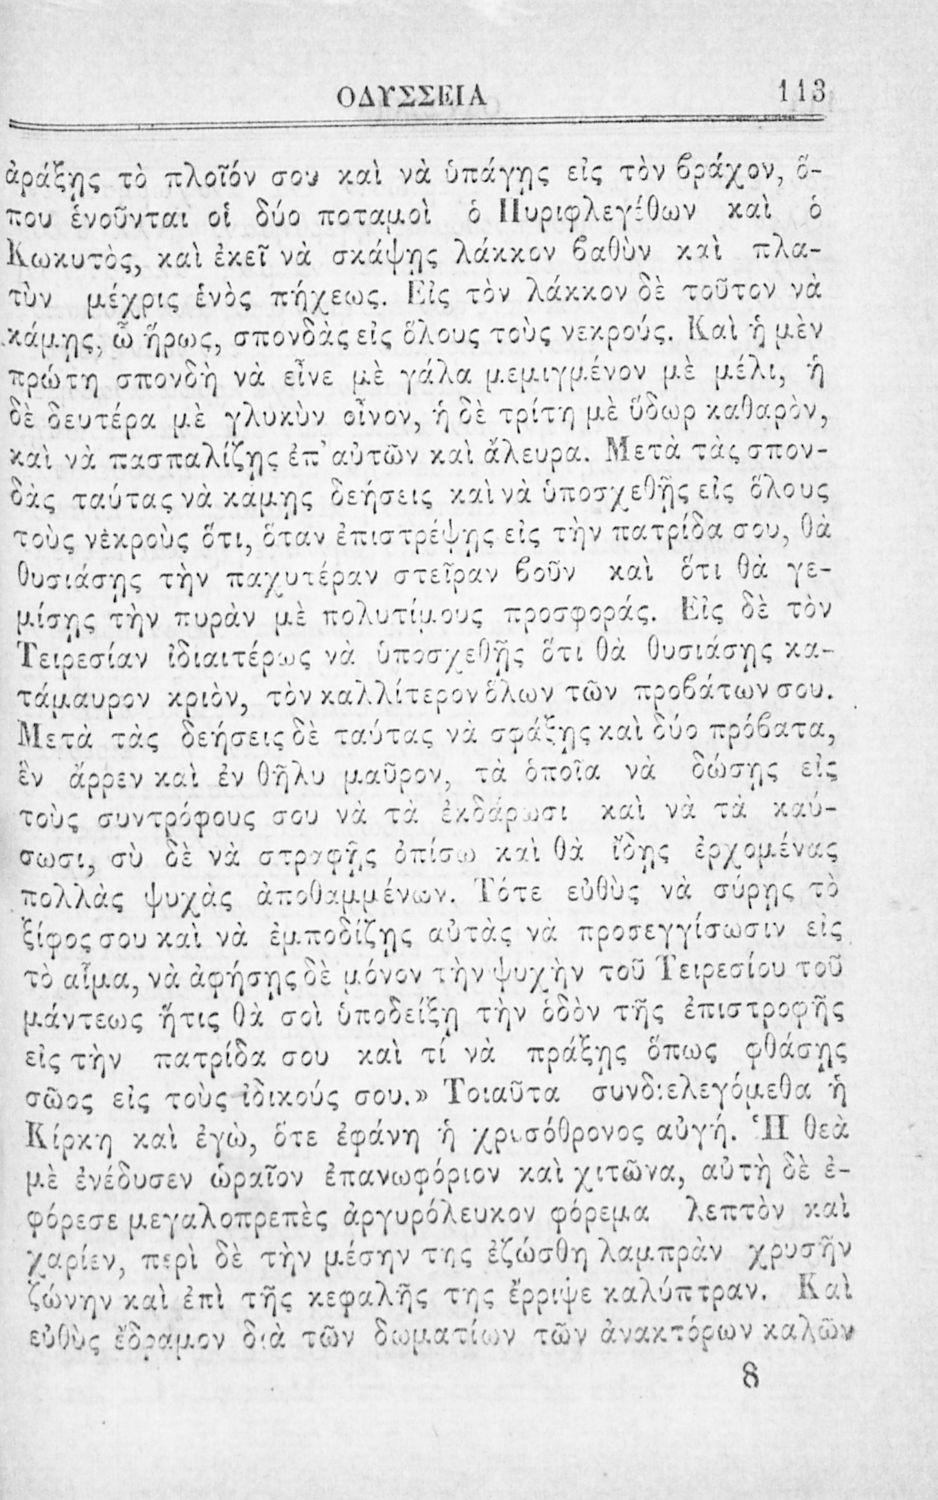 ΟΔΥΣΣΕΙΑ 113
ἀράξῃς τὸ πλοῖόν σου καὶ νὰ ὑπάγῃς εἰς τὸν βράχον, ὅ-
που ἑνοῦνται οἱ δύο ποταμοὶ ὁ Πυριφλεγέθων καὶ ὁ
Κωκυτὸς, καὶ ἐκεῖ νὰ σκάψῃς λάκκον βαθὺν καὶ πλα-
τὺν μέχρις ἑνὸς πήχεως. Εἰς τὸν λάκκον δὲ τοῦτον νὰ
κάμῃς, ὦ ἥρως, σπονδὰς εἰς ὅλους τοὺς νεκρούς. Καὶ ἡ μὲν
πρώτη σπονδὴ νὰ εἶνε μὲ γάλα μεμιγμένον μὲ μέλι, ἡ
δὲ δευτέρα μὲ γλυκὺν οἶνον, ἡ δὲ τρίτη μὲ ὕδωρ καθαρὸν,
καὶ νὰ πασπαλίζῃς ἐπ' αὐτῶν καὶ ἄλευρα. Μετὰ τὰς σπον-
δὰς ταύτας νὰ καμῃς δεήσεις καὶ νὰ ὑποσχεθῇς εἰς ὅλους
τοὺς νέκροὺς ὅτι, ὅταν ἐπιστρέψῃς εἰς τὴν πατρίδα σου, θὰ
θυσιάσῃς τὴν παχυτέραν στεῖραν βοῦν καὶ ὅτι θὰ γε-
μίσῃς τὴν πυρὰν μὲ πολυτίμους προσφοράς. Εἰς δὲ τὸν
Τειρεσίαν ἰδιαιτέρως νὰ ὑποσχεθῇς ὅτι θὰ θυσιάσῃς κα-
τάμαυρον κριὸν, τὸν καλλίτερον ὅλων τῶν προβάτων σου.
Μετὰ τὰς δεήσεις δὲ ταύτας νὰ σφάξῃς καὶ δύο πρόβατα,
ἓν ἄρρεν καὶ ἐν θῆλυ μαῦρον, τὰ ὁποῖα νὰ δώσῃς εἰς
τοὺς συντρόφους σου νὰ τὰ ἐκδάρωσι καὶ νὰ τὰ καύ-
σωσι, σὺ δὲ νὰ στραφῇς ὀπίσω καὶ θὰ ἴδῃς ἐρχομένας
πολλὰς ψυχὰς ἀποθαμμένων. Τότε εὐθὺς νὰ σύρῃς τὸ
ξίφος σου καὶ νὰ ἐμποδίζῃς αὐτὰς νὰ προσεγγίσωσιν εἰς
τὸ αἷμα, νὰ ἀφήσῃς δὲ μόνον τὴν ψυχὴν τοῦ Τειρεσίου τοῦ
μάντεως ἥτις θὰ σοὶ ὑποδείξῃ τὴν ὁδὸν τῆς ἐπιστροφῆς
εἰς τὴν πατρίδα σου καὶ τί νὰ πράξῃς ὅπως φθάσῃς
σῶος εἰς τοὺς ἰδικούς σου.» Τοιαῦτα συνδιελεγόμεθα ἡ
Κίρκη καὶ ἐγὼ, ὅτε ἐφάνη ἡ χρυσόθρονος αὐγή. Ἡ θεὰ
μὲ ἐνέδυσεν ὡραῖον ἐπανωφόριον καὶ χιτῶνα, αὐτὴ δὲ ἐ-
φόρεσε μεγαλοπρεπὲς ἀργυρόλευκον φόρεμα λεπτὸν καὶ
χαρίεν, περὶ δὲ τὴν μέσην της ἐζώσθη λαμπρὰν χρυσῆν
ζώνην καὶ ἐπὶ τῆς κεφαλῆς της ἔρριψε καλύπτραν. Καὶ
εὐθὺς ἔδραμον διὰ τῶν δωματίων τῶν ἀνακτόρων καλῶν
8